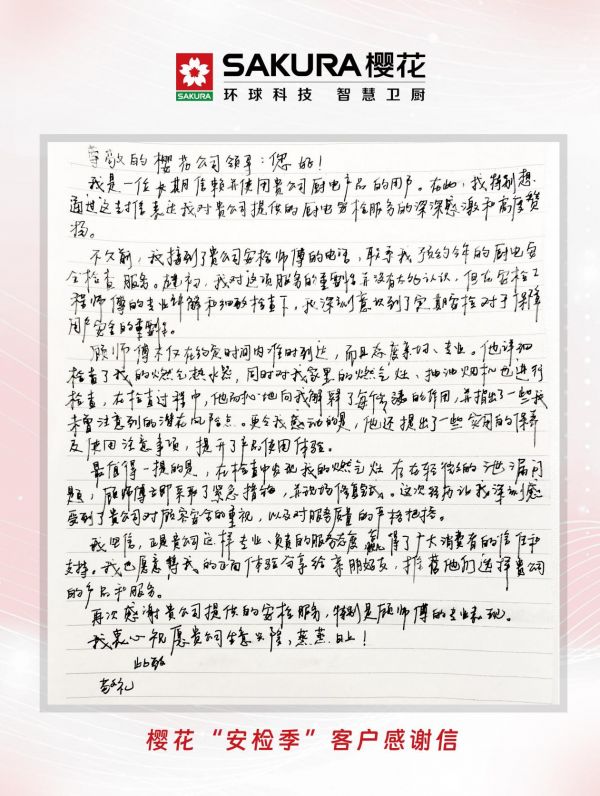 SAKURA
SAKURA 樱花
环球科技 智慧卫厨
尊敬的樱花公司领导：您好！
我是一位长期信赖并使用贵公司厨电产品的用户。在此，我特别想
通过这封信表达我对贵公司提供的厨电安检服务的深深感激和高度赞
扬。
不久前，我接到了贵公司安检师傅的电话，联系我预约今年的厨电安
全检查服务。起初，我对这项服务的重要性并没有太多认识，但在安检工
程师傅的专业讲解和细致检查下，我深刻意识到了定期安检对于保障
用户安全的重要性。
顾师傅不仅在约定时间内准时到达，而且态度亲切、专业。他详细
检查了我的燃气热水器，同时对我家里的燃气灶、抽油烟机也进行
检查，在检查过程中，他耐心地向我解释了每个步骤的作用，并指出了一些我
未曾注意到的潜在风险点。更令我感动的是，他还提出了一些实用的保养
及使用注意事项，提升了产品使用体验。
最值得一提的是，在检查中发现我的燃气灶存在轻微的泄漏问
题，顾师傅立即采取了紧急措施，并现场修复。这次经历让我深刻感
受到了贵公司对顾客安全的重视，以及对服务质量的严格把控。
我坚信，正是贵公司这样专业、负责的服务态度，赢得了广大消费者的信任和
支持。我也愿意将我的正面体验分享给亲朋好友，推荐他们选择贵公司
的产品和服务。
再次感谢贵公司提供的安检服务，特别是顾师傅的专业表现。
我衷心祝愿贵公司生意兴隆，蒸蒸日上！
此致
敬礼
樱花“安检季”客户感谢信